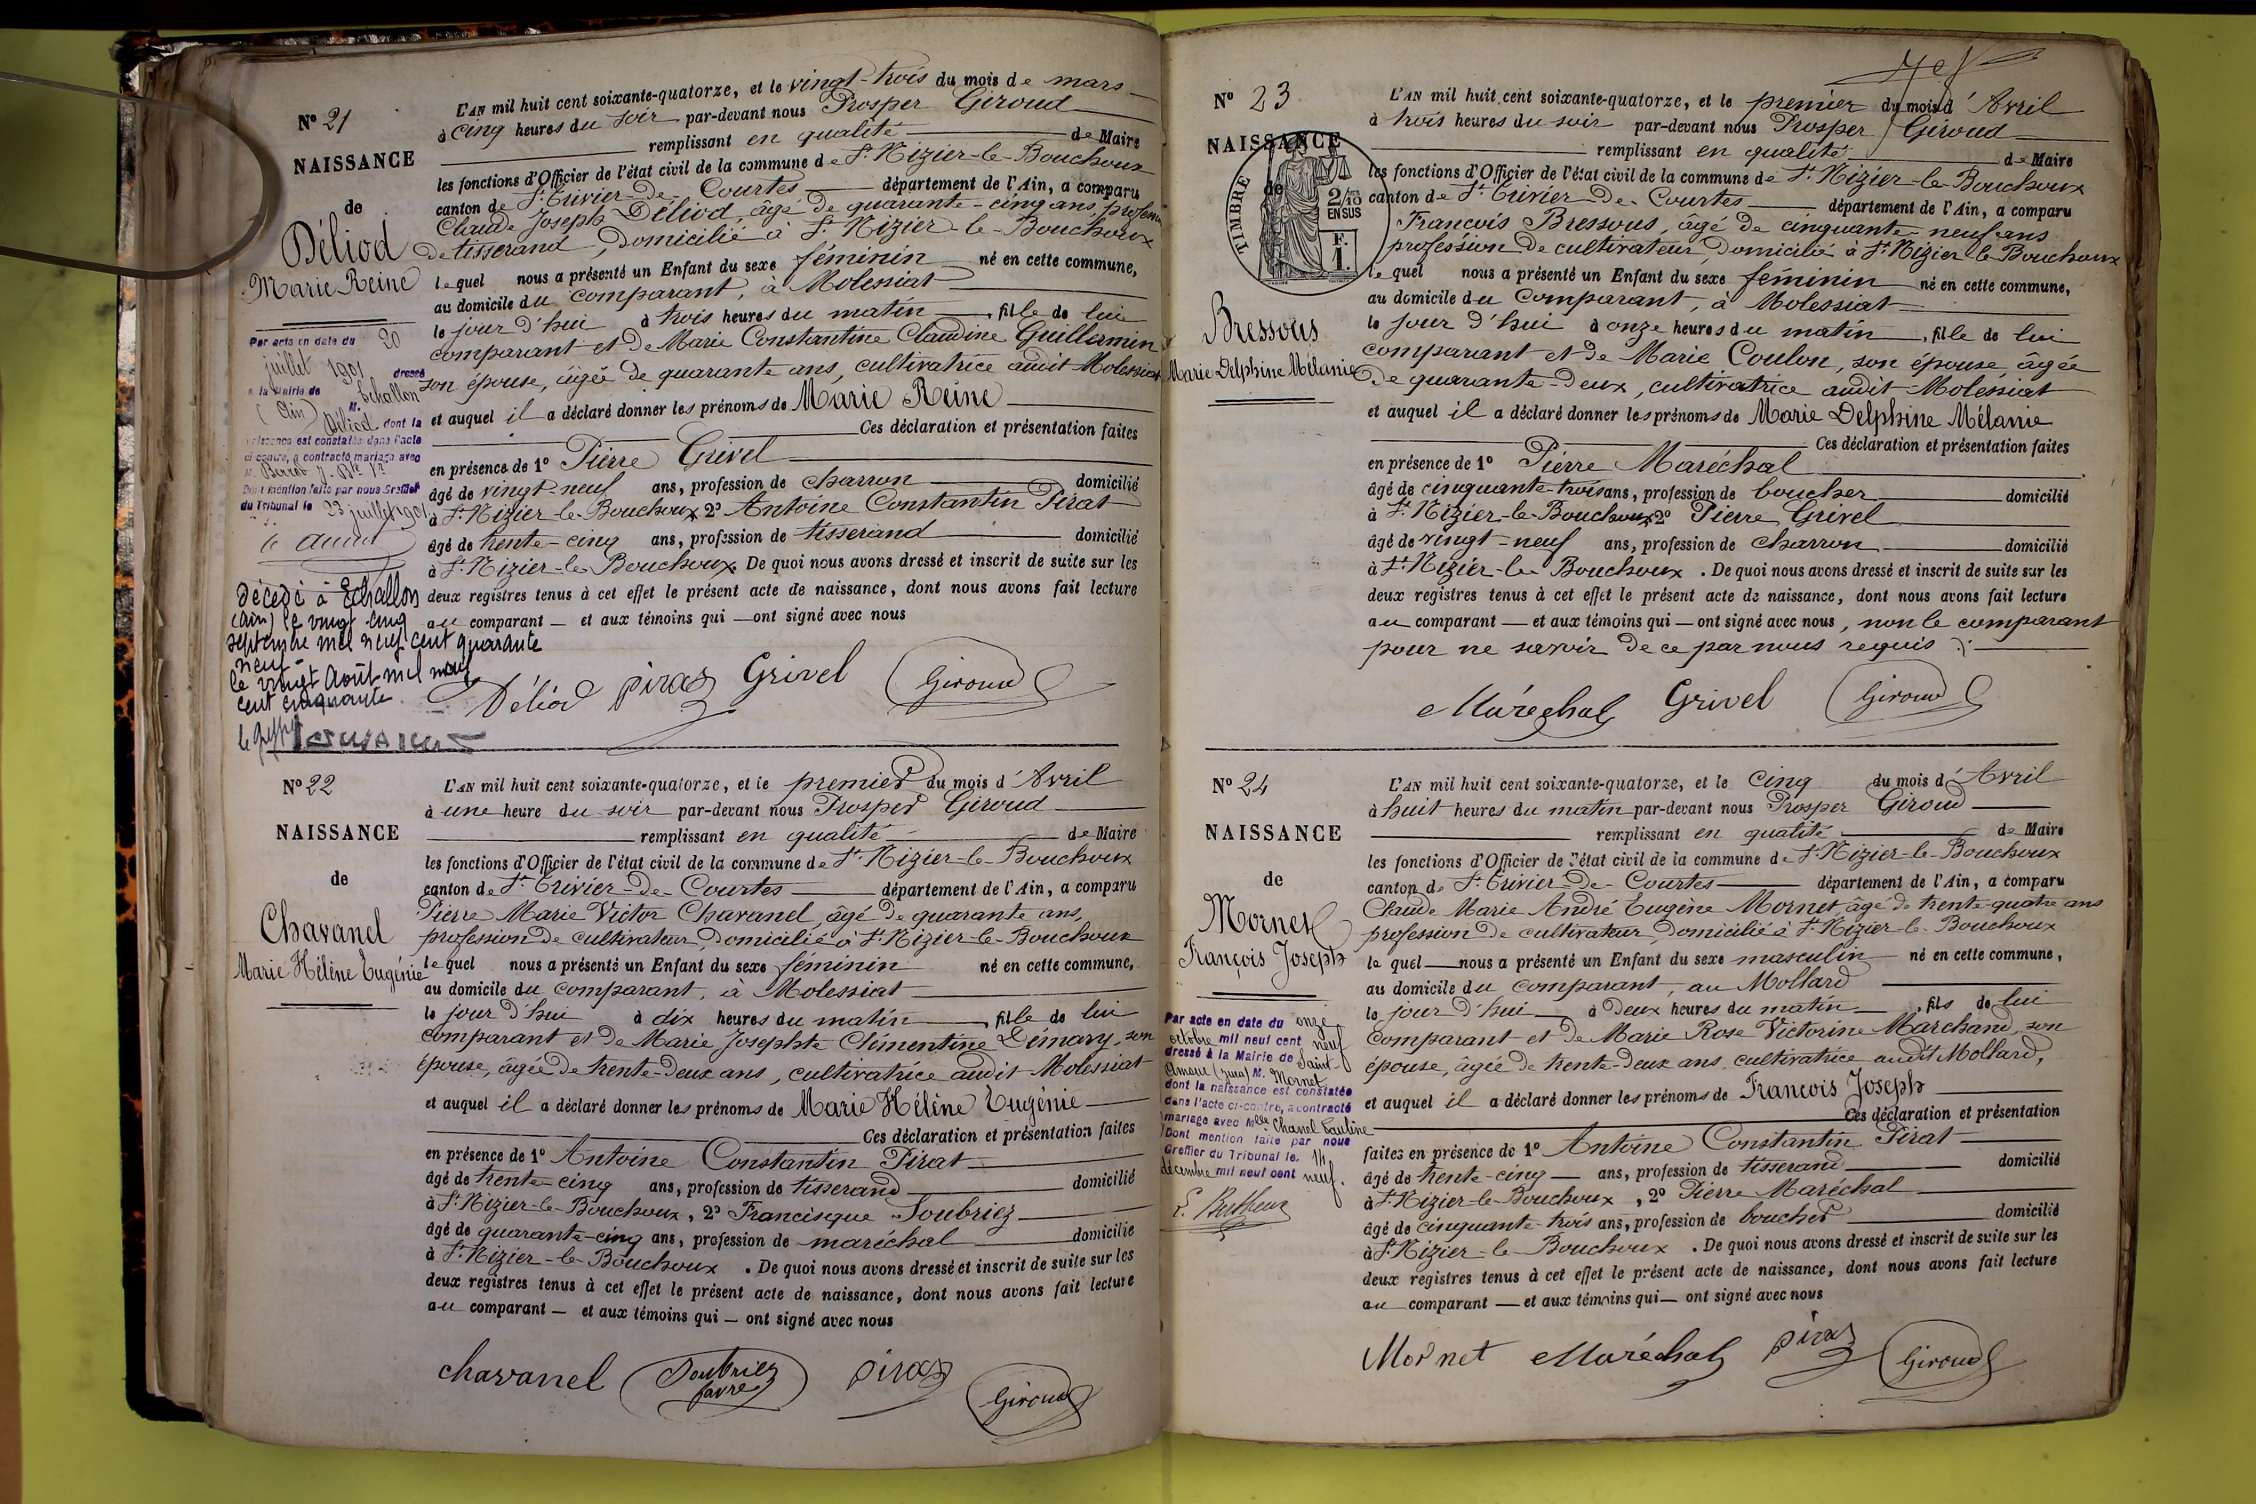 N° 21
NAISSANCE
de
Déliod
Marie Reine
Par acte en date du 20
juillet 1901 dressé
à la Mairie de Echallon
(Ain) M.
Déliod dont la
naissance est constatée dans l'acte
ci-contre, a contracté mariage avec
Dont mention faite par nous Greffier
du Tribunal le 23 juillet 1901
Décédé à Echallon
(Ain) le vingt cinq
septembre mil neuf cent quarante
neuf.
le vingt Août mil neuf
cent cinquante
le Greffier
L'AN mil huit cent soixante-quatorze, et le vingt-trois du mois de mars
à cinq heures du soir par-devant nous Prosper Giroud
remplissant en qualité de Maire
les fonctions d'Officier de l'état civil de la commune de St Nizier-le-Bouchoux
canton de St Trivier-de-Courtes département de l'Ain, a comparu
Claude Joseph Déliod, âgé de quarante-cinq ans, profession
de tisserand, domicilié à St Nizier-le-Bouchoux
lequel nous a présenté un Enfant du sexe féminin né en cette commune,
au domicile du comparant, à Molessiat
le jour d'hui à trois heures du matin, fille de lui
comparant et de Marie Constantine Claudine Guillermin
son épouse, âgée de quarante ans, cultivatrice audit Molessiat
et auquel il a déclaré donner les prénoms de Marie Reine
Ces déclaration et présentation faites
en présence de 1° Pierre Grivel
âgé de vingt-neuf ans, profession de charron domicilié
à St Nizier-le-Bouchoux 2° Antoine Constantin Pirat
âgé de trente-cinq ans, profession de tisserand domicilié
à St Nizier-le-Bouchoux. De quoi nous avons dressé et inscrit de suite sur les
deux registres tenus à cet effet le présent acte de naissance, dont nous avons fait lecture
au comparant — et aux témoins qui — ont signé avec nous
Déliod Pirat Grivel Giroud
N° 22
NAISSANCE
de
Chavanel
Marie Hélène Eugénie
L'AN mil huit cent soixante-quatorze, et le premier du mois d'Avril
à une heure du soir par-devant nous Prosper Giroud
remplissant en qualité de Maire
les fonctions d'Officier de l'état civil de la commune de St Nizier-le-Bouchoux
canton de St Trivier-de-Courtes département de l'Ain, a comparu
Pierre Marie Victor Chavanel, âgé de quarante ans,
profession de cultivateur, domicilié à St Nizier-le-Bouchoux
lequel nous a présenté un Enfant du sexe féminin né en cette commune,
au domicile du comparant, à Molessiat
le jour d'hui à dix heures du matin, fille de lui
comparant et de Marie Josephte Clémentine Démary, son
épouse, âgée de trente-deux ans, cultivatrice audit Molessiat
et auquel il a déclaré donner les prénoms de Marie Hélène Eugénie
Ces déclaration et présentation faites
en présence de 1° Antoine Constantin Pirat
âgé de trente-cinq ans, profession de tisserand domicilié
à St Nizier-le-Bouchoux, 2° Francisque Soubriez
âgé de quarante-cinq ans, profession de maréchal domicilié
à St Nizier-le-Bouchoux. De quoi nous avons dressé et inscrit de suite sur les
deux registres tenus à cet effet le présent acte de naissance, dont nous avons fait lecture
au comparant — et aux témoins qui — ont signé avec nous
chavanel Soubriez favre Pirat Giroud
N° 23
NAISSANCE
de
TIMBRE
2/10
EN SUS
F.
1.
Bressous
Marie Delphine Mélanie
L'AN mil huit cent soixante-quatorze, et le premier du mois d'Avril
à trois heures du soir par-devant nous Prosper Giroud
remplissant en qualité de Maire
les fonctions d'Officier de l'état civil de la commune de St Nizier-le-Bouchoux
canton de St Trivier-de-Courtes département de l'Ain, a comparu
François Bressous, âgé de cinquante-neuf ans
profession de cultivateur, domicilié à St Nizier-le-Bouchoux
lequel nous a présenté un Enfant du sexe féminin né en cette commune,
au domicile du comparant, à Molessiat
le jour d'hui à onze heures du matin, fille de lui
comparant et de Marie Coulon, son épouse, âgée
de quarante-deux, cultivatrice audit Molessiat
et auquel il a déclaré donner les prénoms de Marie Delphine Mélanie
Ces déclaration et présentation faites
en présence de 1° Pierre Maréchal
âgé de cinquante-trois ans, profession de boucher domicilié
à St Nizier-le-Bouchoux 2° Pierre Grivel
âgé de vingt-neuf ans, profession de charron domicilié
à St Nizier-le-Bouchoux. De quoi nous avons dressé et inscrit de suite sur les
deux registres tenus à cet effet le présent acte de naissance, dont nous avons fait lecture
au comparant — et aux témoins qui — ont signé avec nous, non le comparant
pour ne savoir de ce par nous requis
Maréchal Grivel Giroud
N° 24
NAISSANCE
de
Mornet
François Joseph
Par acte en date du onze
octobre mil neuf cent neuf
dressé à la Mairie de Saint-
Amour (Jura) M. Mornet
dont la naissance est constatée
dans l'acte ci-contre, a contracté
mariage avec Melle Chanel Pauline
Dont mention faite par nous
Greffier du Tribunal le 14
décembre mil neuf cent neuf.
L'AN mil huit cent soixante-quatorze, et le cinq du mois d'Avril
à huit heures du matin par-devant nous Prosper Giroud
remplissant en qualité de Maire
les fonctions d'Officier de l'état civil de la commune de St Nizier-le-Bouchoux
canton de St Trivier-de-Courtes département de l'Ain, a comparu
Claude Marie André Eugène Mornet, âgé de trente-quatre ans
profession de cultivateur, domicilié à St Nizier-le-Bouchoux
lequel nous a présenté un Enfant du sexe masculin né en cette commune,
au domicile du comparant, au Mollard
le jour d'hui à deux heures du matin, fils de lui
comparant et de Marie Rose Victorine Marchand, son
épouse, âgée de trente-deux ans, cultivatrice audit Mollard,
et auquel il a déclaré donner les prénoms de François Joseph
Ces déclaration et présentation
faites en présence de 1° Antoine Constantin Pirat
âgé de trente-cinq ans, profession de tisserand domicilié
à St Nizier-le-Bouchoux, 2° Pierre Maréchal
âgé de cinquante-trois ans, profession de boucher domicilié
à St Nizier-le-Bouchoux. De quoi nous avons dressé et inscrit de suite sur les
deux registres tenus à cet effet le présent acte de naissance, dont nous avons fait lecture
au comparant — et aux témoins qui — ont signé avec nous
Mornet Maréchal Pirat Giroud